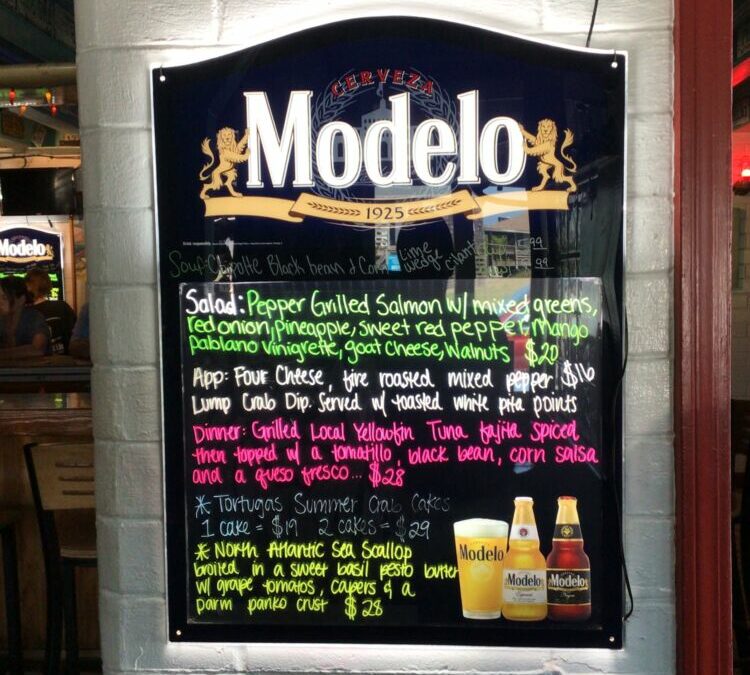 CERVEZA
Modelo
1925
Soup Chipotle Black bean & Corn lime
wedge cilantro
Salad: Pepper Grilled Salmon w/ mixed greens,
red onion, Pineapple, sweet red pepper, Mango
pablano vinigrette, goat cheese, Walnuts $20
App: Four Cheese, fire roasted mixed pepper $16
Lump Crab Dip. Served w/ toasted white pita points
Dinner: Grilled Local Yellowfin Tuna fajita spiced
then topped w/ a tomatillo, black bean, corn salsa
and a queso fresco... $28
* Tortugas Summer Crab Cakes
1 cake = $19 2 cakes = $29
* North Atlantic Sea Scallop
broiled in a sweet basil pesto butter
w/ grape tomatos, capers & a
parm panko crust $28
Modelo
Modelo
Especial
Modelo
Negra
Modelo